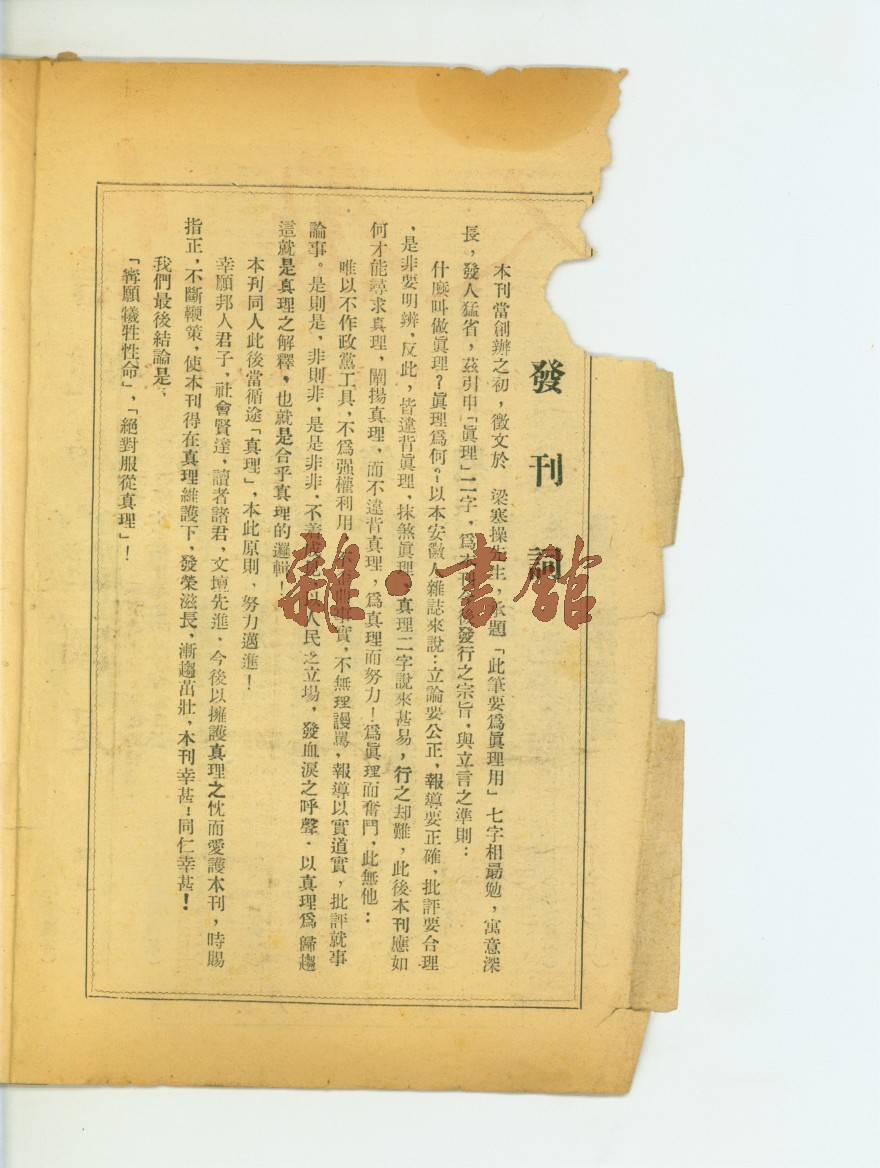 發刊詞
本刊當創辦之初，徵文於　梁寒操先生，承題「此筆要爲眞理用」七字相勗勉，寓意深
長，發人猛省，茲引申「眞理」二字，爲本刊今後發行之宗旨，與立言之準則：
什麼叫做眞理？眞理爲何？以本安徽人雜誌來說：立論要公正，報導要正確，批評要合理
，是非要明辨，反此，皆違背眞理，抹煞眞理，真理二字說來甚易，行之却難，此後本刊應如
何才能尋求真理，闡揚真理，而不違背真理，爲真理而努力！爲眞理而奮鬥，此無他：
唯以不作政黨工具，不爲强權利用，不　　事實，不無理謾罵，報導以實道實，批評就事
論事。是則是，非則非，是是非非，不　成見，以人民之立場，發血淚之呼聲．以真理爲歸趨
這就是真理之解釋，也就是合乎真理的邏輯！
本刋同人此後當循途「真理」，本此原則，努力邁進！
幸願邦人君子，社會賢達，讀者諸君，文壇先進，今後以擁護真理之忱而愛護本刊，時賜
指正，不斷鞭策，使本刊得在真理維護下，發榮滋長，漸趨茁壯，本刊幸甚！同仁幸甚！
我們最後結論是：
「寗願犧牲性命」，「絕對服從真理」！
雜·書館